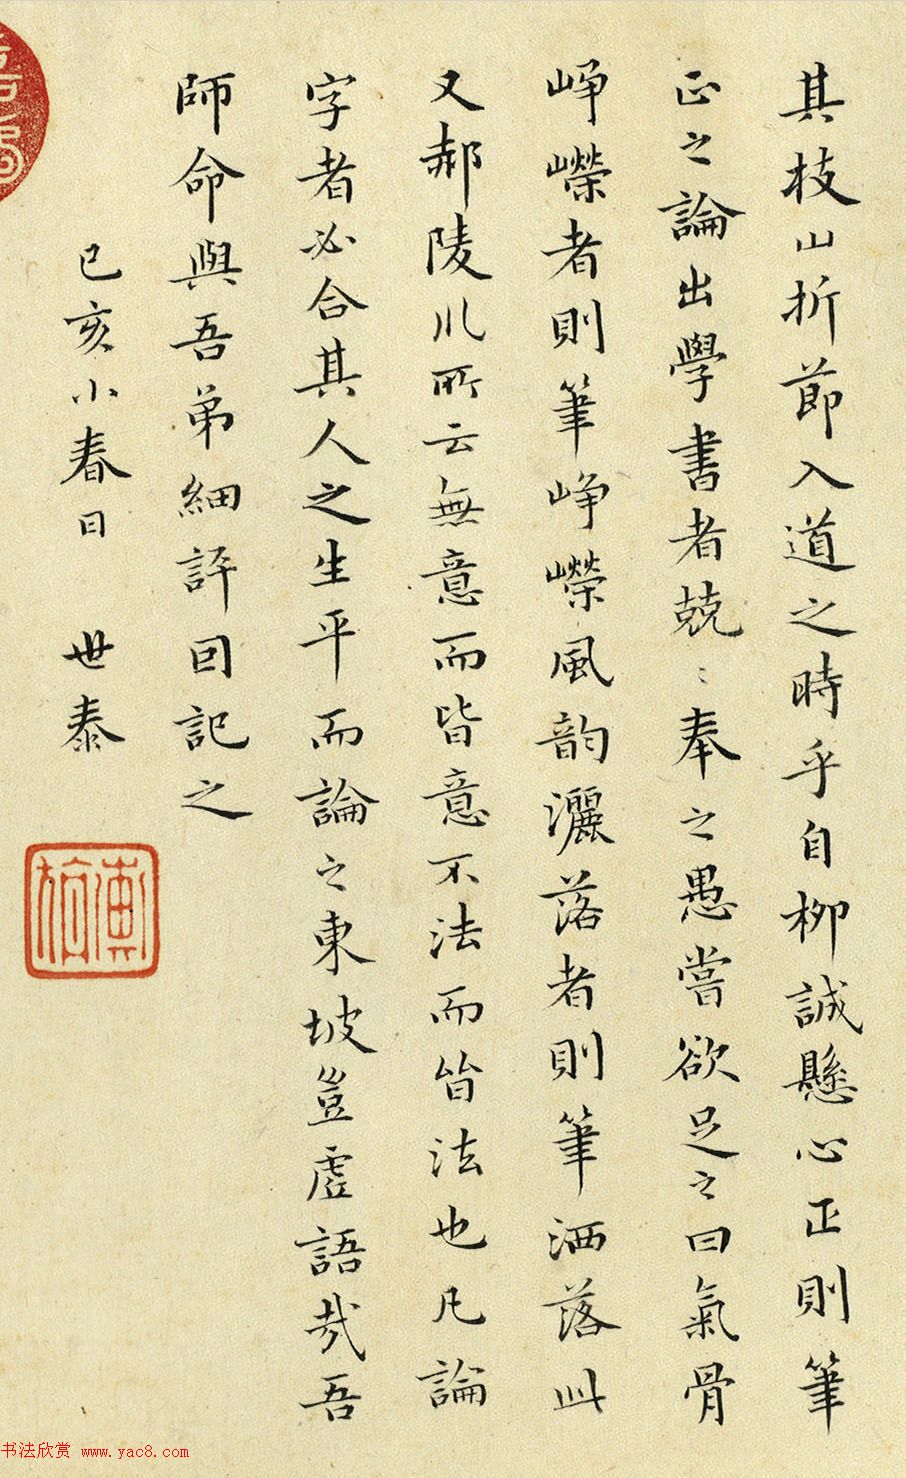 其枝山折節入道之時乎自柳誠懸心正則筆
正之論出學書者兢〻奉之愚嘗欲足之曰氣骨
崢嶸者則筆崢嶸風韵灑落者則筆洒落此
又郝陵川所云無意而皆意不法而皆法也凡論
字者必合其人之生平而論之東坡豈虛語哉吾
師命與吾弟細評因記之
己亥小春日 世泰
书法欣赏 www.yac8.com